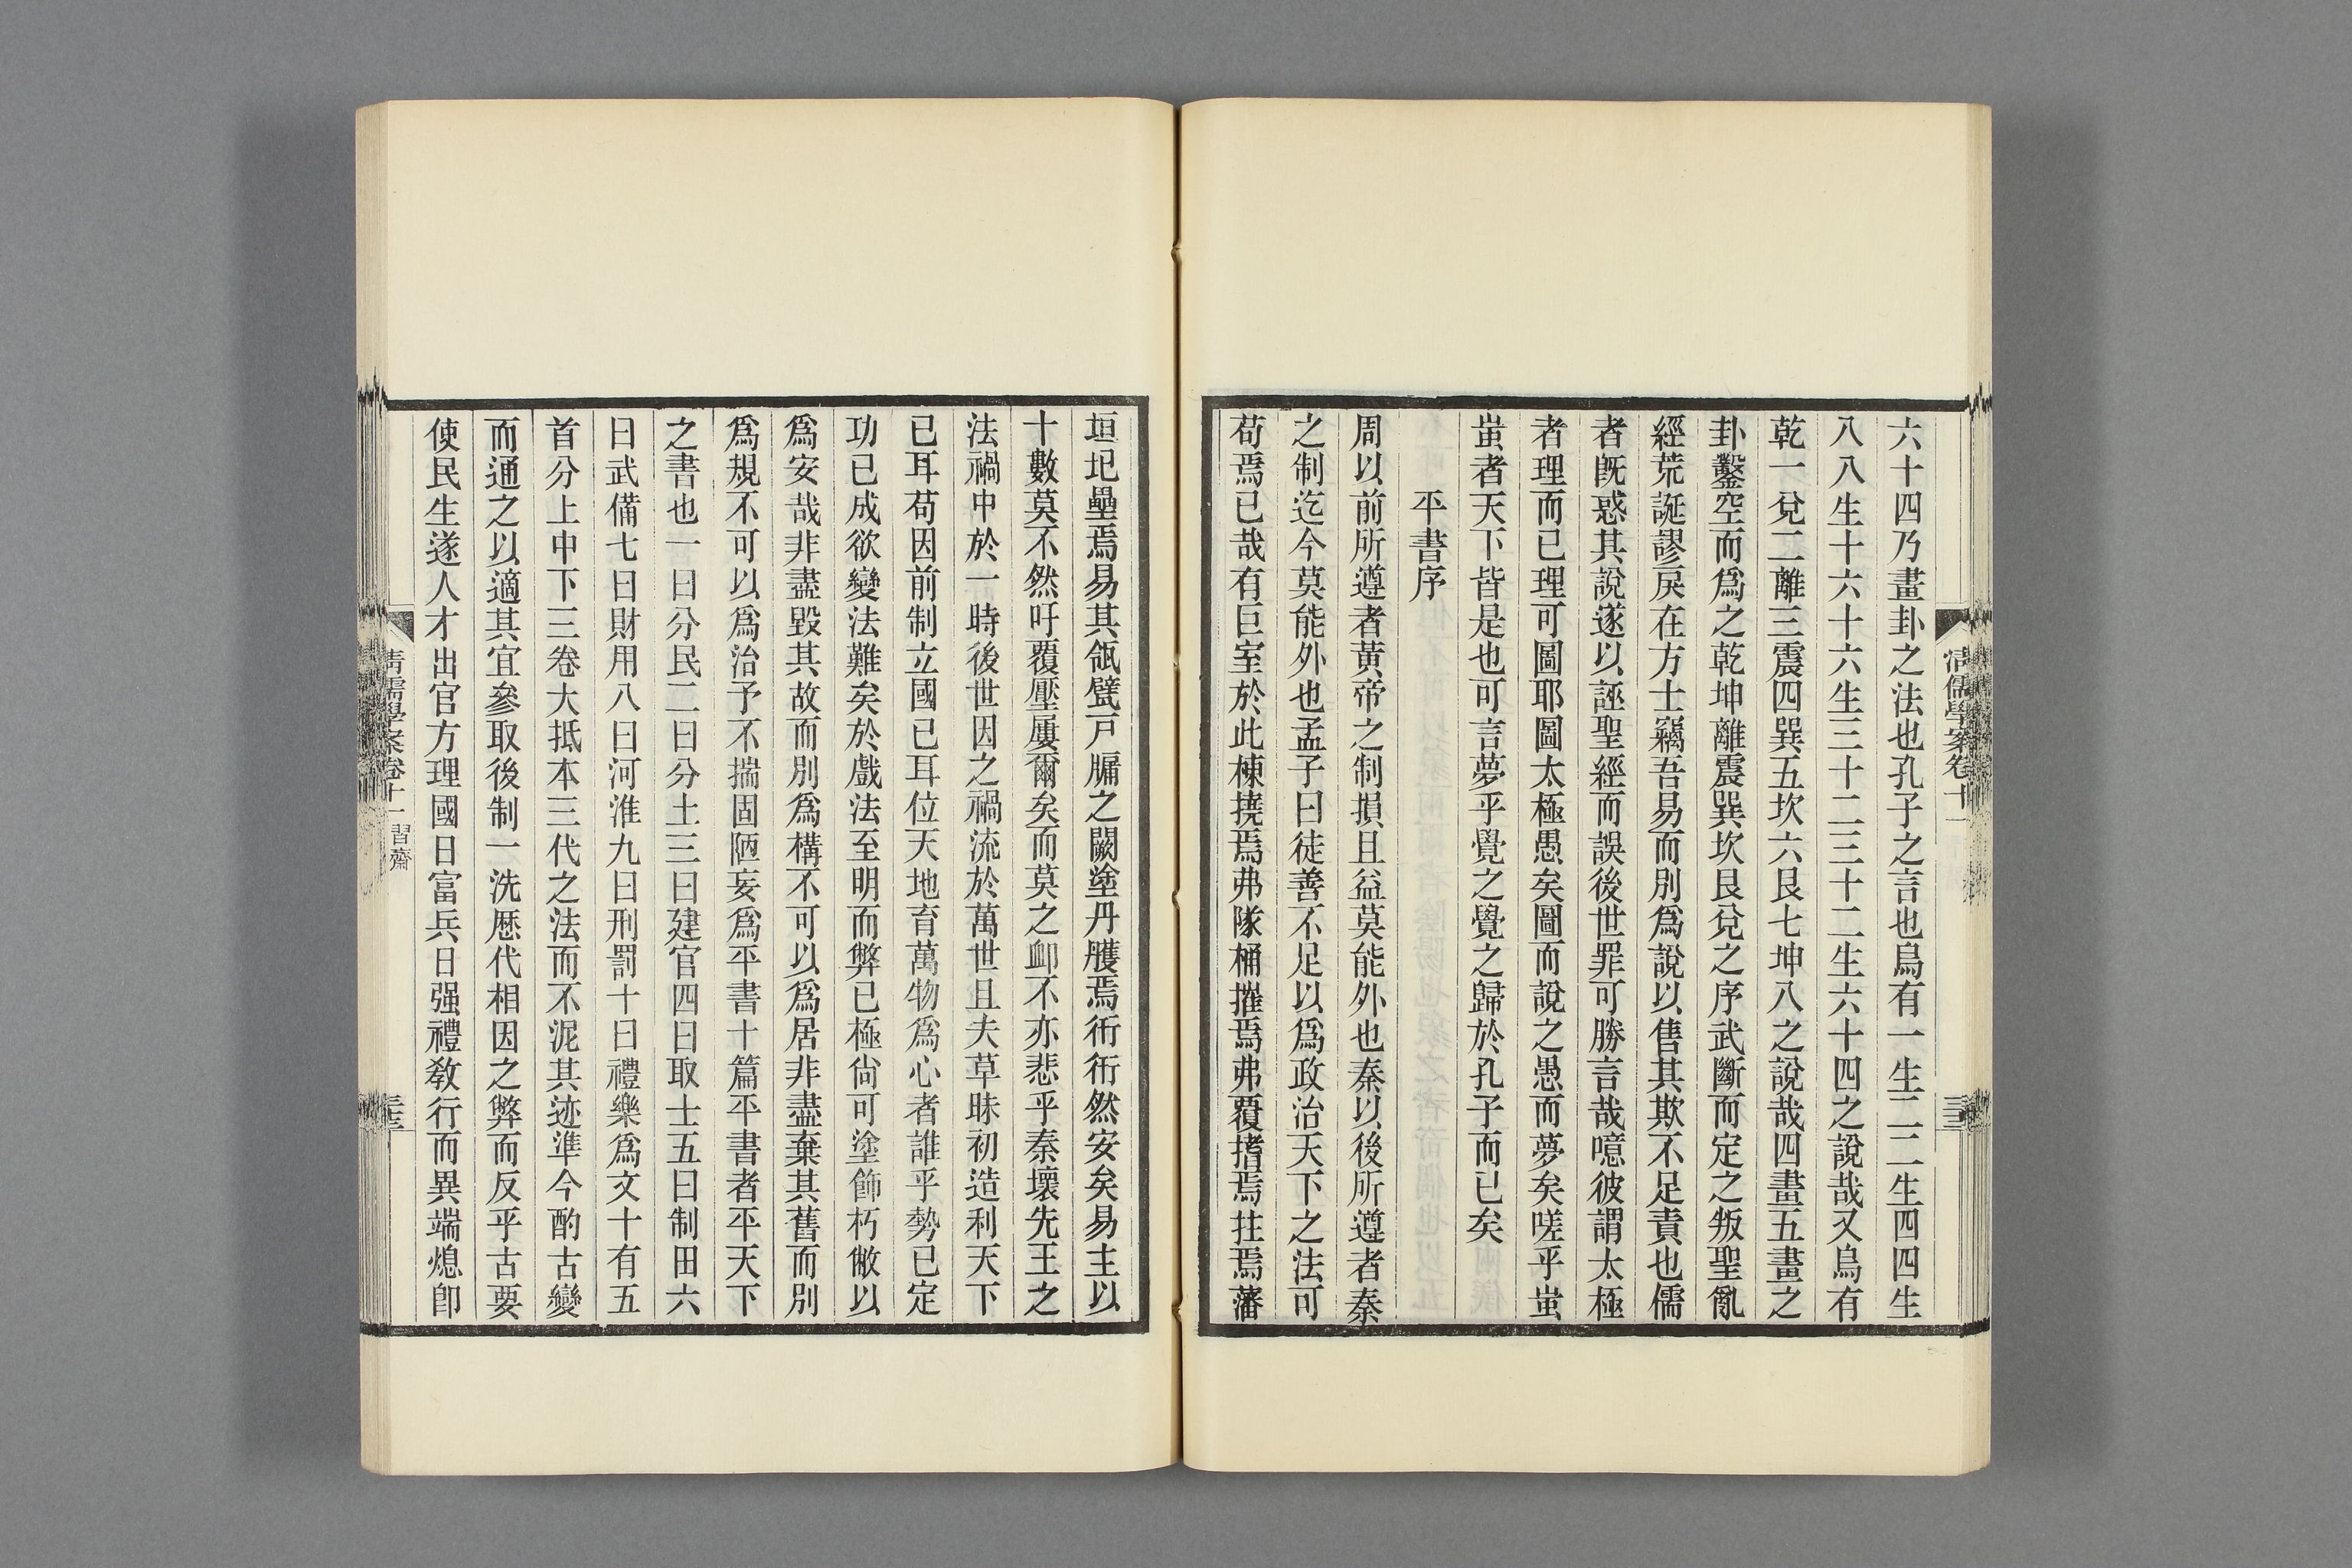 六十四乃畫卦之法也孔子之言也烏有一生二二生四四生
八八生十六十六生三十二三十二生六十四之說哉又烏有
乾一兌二離三震四巽五坎六艮七坤八之說哉四畫五畫之
卦鑿空而爲之乾坤離震巽坎艮兌之序武斷而定之叛聖亂
經荒誕謬戾在方士竊吾易而別爲說以售其欺不足責也儒
者旣惑其說遂以誣聖經而誤後世罪可勝言哉噫彼謂太極
者理而已理可圖耶圖太極愚矣圖而說之愚而夢矣嗟乎蚩
蚩者天下皆是也可言夢乎覺之覺之歸於孔子而已矣
平書序
周以前所遵者黃帝之制損且益莫能外也秦以後所遵者秦
之制迄今莫能外也孟子曰徒善不足以爲政治天下之法可
苟焉已哉有巨室於此棟撓焉弗隊桷摧焉弗覆㨙焉拄焉藩
清儒學案卷十一
三三
垣圯壘焉易其瓴甓戸牖之闕塗丹雘焉衎衎然安矣易主以
十數莫不然吁覆壓屢爾矣而莫之卹不亦悲乎秦壞先王之
法禍中於一時後世因之禍流於萬世且夫草昧初造利天下
已耳苟因前制立國已耳位天地育萬物爲心者誰乎勢已定
功已成欲變法難矣於戲法至明而弊已極尙可塗飾朽敝以
爲安哉非盡毀其故而別爲構不可以爲居非盡棄其舊而別
爲規不可以爲治予不揣固陋妄爲平書十篇平書者平天下
之書也一曰分民二曰分土三曰建官四曰取士五曰制田六
曰武備七曰財用八曰河淮九曰刑罰十曰禮樂爲文十有五
首分上中下三卷大抵本三代之法而不泥其迹準今酌古變
而通之以適其宜參取後制一洗歷代相因之弊而反乎古要
使民生遂人才出官方理國日富兵日强禮敎行而異端熄卽
清儒學案卷十一 習齋